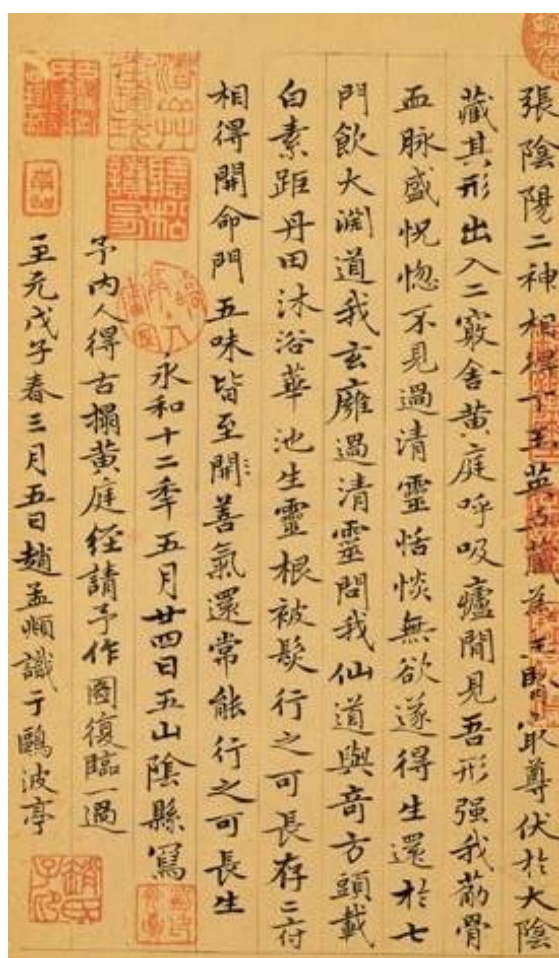 張陰陽二神相得下玉英五藏為主腎㝡尊伏於大陰
藏其形出入二竅舍黄庭呼吸廬間見吾形强我筋骨
血脉盛怳惚不見過清靈恬惔無欲遂得生還於七
門飲大淵道我玄廱過清靈問我仙道與奇方頭載
白素距丹田沐浴華池生靈根被髮行之可長存二府
相得開命門五味皆至開善氣還常能行之可長生
永和十二年五月廿四日五山陰縣寫
予内人得古搨黄庭經請予作圖復臨一過
至元戊子春三月五日趙孟頫識于鷗波亭